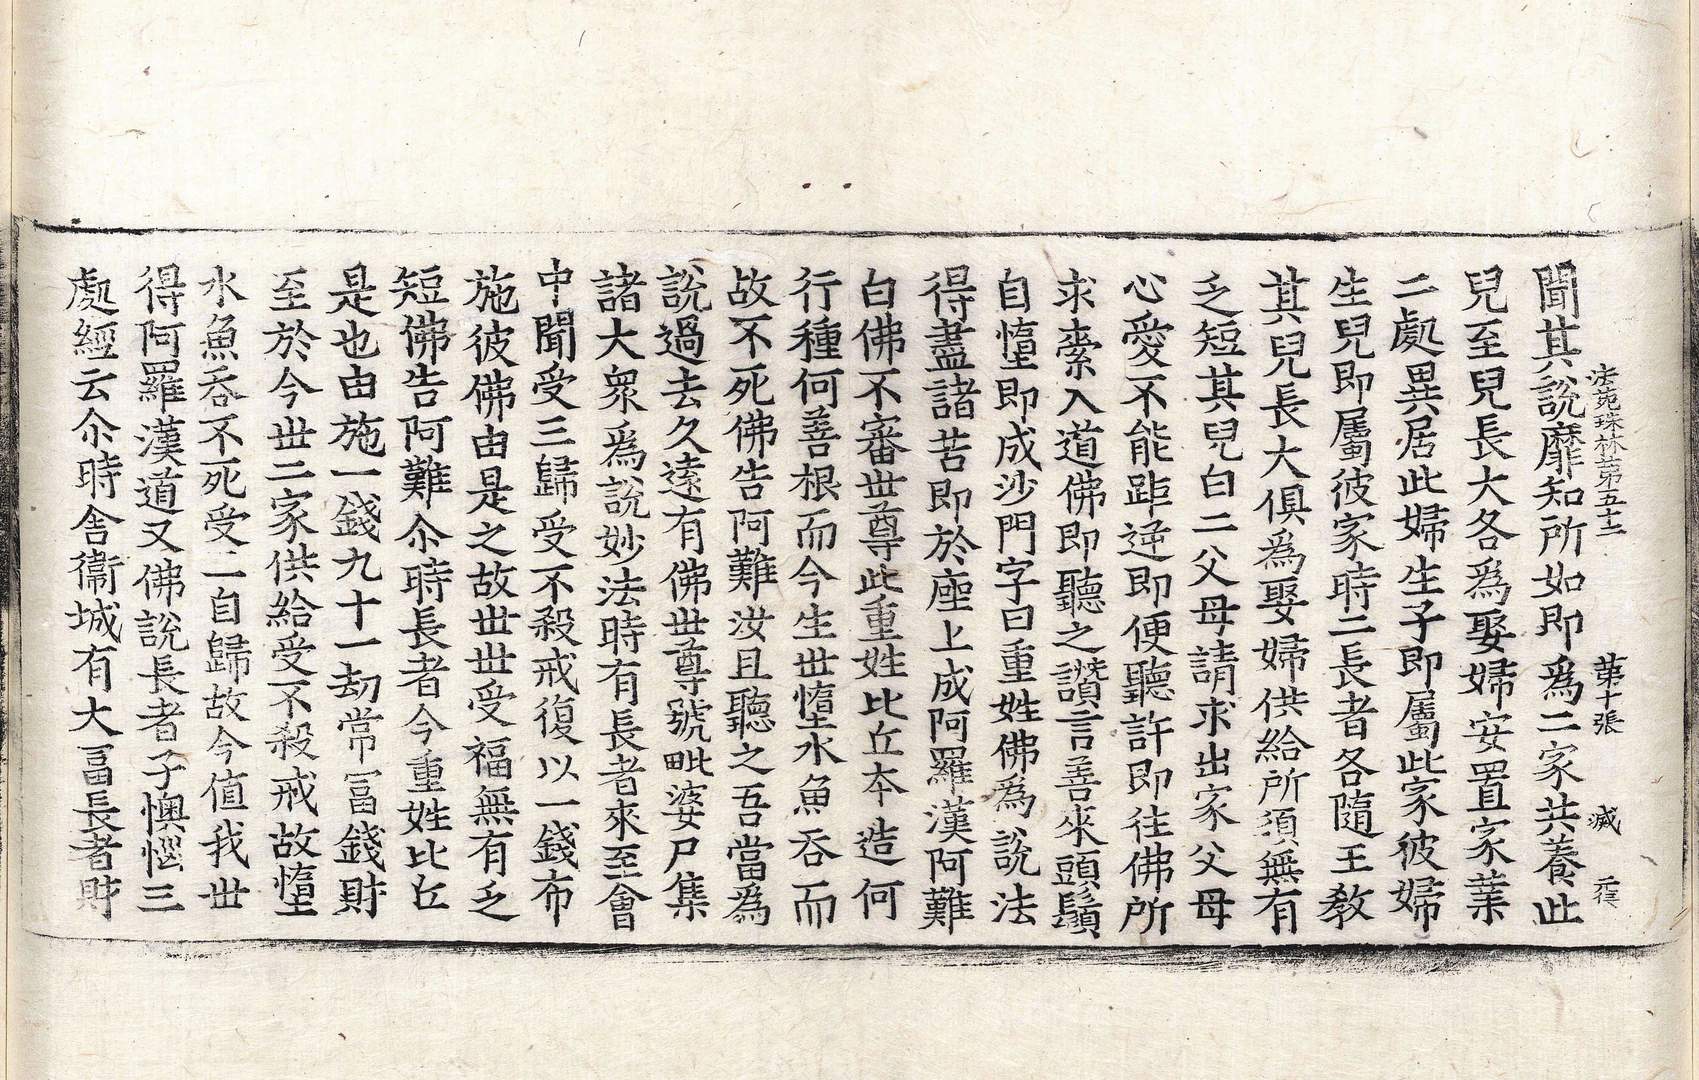 法苑珠林第五十二 第十張 滅
聞其說靡知所如即爲二家共養此
兒至兒長大各爲娶婦安置家業
二處異居此婦生子即屬此家彼婦
生兒即屬彼家時二長者各隨王教
其兒長大俱爲娶婦供給所須無有
乏短其兒白二父母請求出家父母
心愛不能距逆即便聽許即往佛所
求索入道佛即聽之讚言善來頭鬚
自墮即成沙門字曰重姓佛爲說法
得盡諸苦即於座上成阿羅漢阿難
白佛不審世尊此重姓比丘本造何
行種何善根而今生世墮水魚吞而
故不死佛告阿難汝且聽之吾當爲
說過去久遠有佛世尊號毗婆尸集
諸大衆爲說妙法時有長者來至會
中聞受三歸受不殺戒復以一錢布
施彼佛由是之故世世受福無有乏
短佛告阿難尒時長者今重姓比丘
是也由施一錢九十一劫常冨錢財
至於今世二家供給受不殺戒故墮
水魚吞不死受二自歸故今值我世
得阿羅漢道又佛說長者子懊惱三
處經云尒時舍衞城有大冨長者財